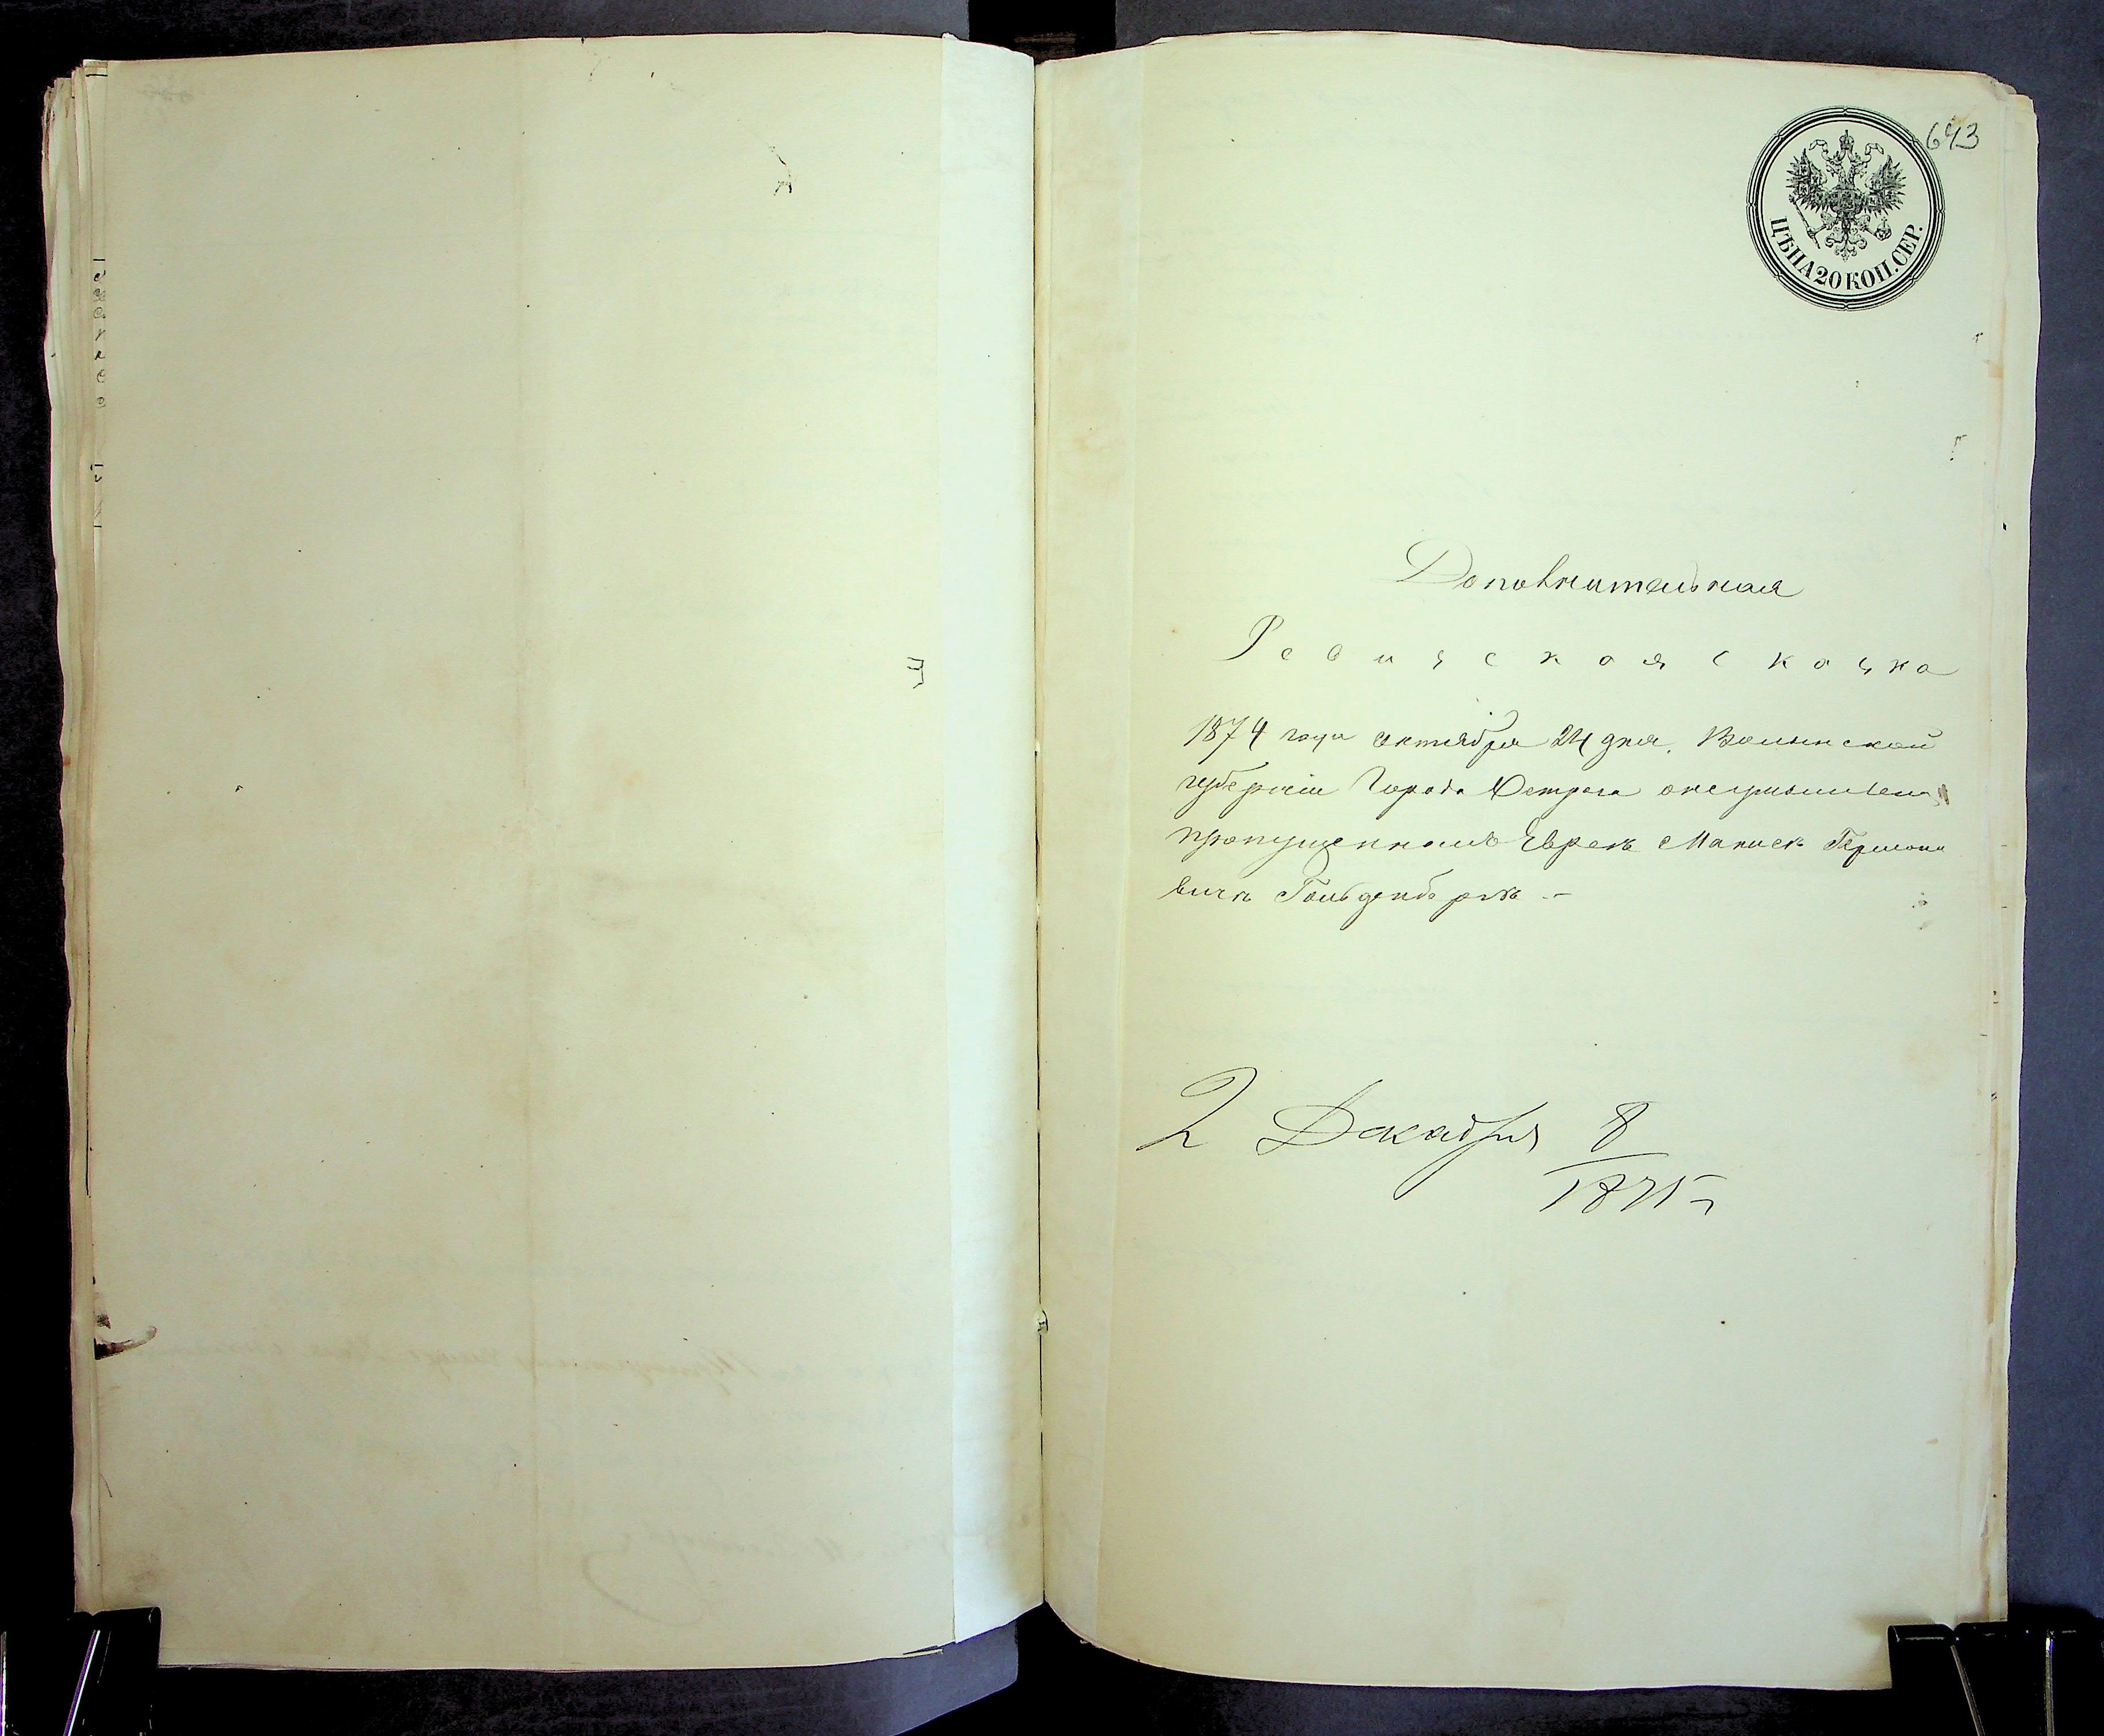 643
ЦѢНА 20 КОП. СЕР.
Дополнительная
Ревизская сказка
1874 года октября 24 дня. Волынской
губерніи Города Острога о
пропущенномъ Евреѣ Манисѣ Гершоно
вичѣ Гольденбергѣ -
2 Декабря 8
1875